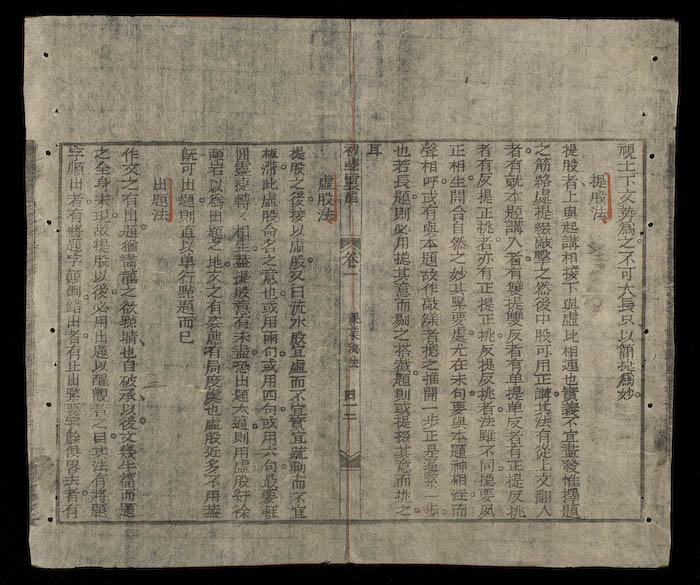 視上下文勢為之不可太長只以簡提為妙
提股法
提股者上與起講相接下與虛比相連也實義不宜盡發惟擇題
之筋絡處提綴敲擊之然後中股可用正講其法有從上文翻入
者有就本題講入者有雙提雙反者有单提单反者有正提反挑
者有反提正挑者亦有正提正挑反提反挑者法雖不同揔要夙
正相生開合自然之妙其緊要處尤在末句要與本題神相注而
聲相呼或有與本題故作敲漾者揔之推開一步正是逼緊一步
也若長題則必用揔其意而剔之搭截題則或提掇其意而挑之
耳
卷一
虛股法
提股之後接以虛股又曰流水股宜虛而不宜實宜疏動而不宜
板滞此虛股命名之意也或用兩句或用四句或用六句最要輕
圓靈捷轉々相生盖提股意有未盡恐出題太逼則用虛股紆徐
頓宕以為出題之地文之有姿態有局度處也虛股近多不用盖
既可出題則直以单行點題而已
出題法
作文之有出題猶畵龍之欲點睛也自破承以後文幾半篇而題
之全身未現故提股以後必用出題以醒觀者之目其法有將題
字順出者有將題字顛倒錯出者有止出緊要字餘俱畧去者有